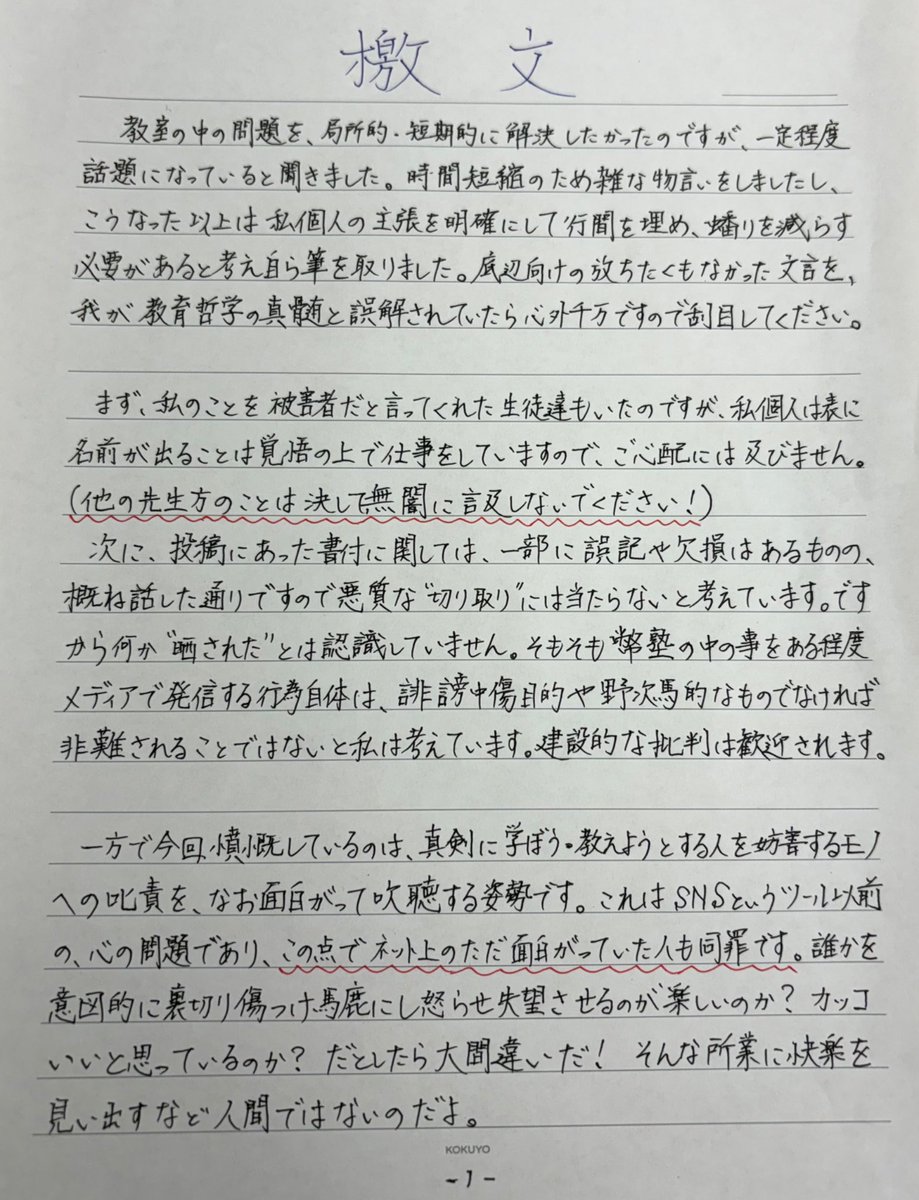 檄文
教室の中の問題を、局所的・短期的に解決したかったのですが、一定程度
話題になっていると聞きました。時間短縮のため雑な物言いをしましたし、
こうなった以上は私個人の主張を明確にして行間を埋め、蟠りを減らす
必要があると考え自ら筆を取りました。底辺向けの放ちたくもなかった文言を、
我が教育哲学の真髄と誤解されていたら心外千万ですので刮目してください。
まず、私のことを被害者だと言ってくれた生徒達もいたのですが、私個人は表に
名前が出ることは覚悟の上で仕事をしていますので、ご心配には及びません。
(他の先生方のことは決して無闇に言及しないでください!)
次に、投稿にあった書付に関しては、一部に誤記や欠損はあるものの、
概ね話した通りですので悪質な“切り取り”には当たらないと考えています。です
から何か“晒された”とは認識していません。そもそも幣塾の中の事をある程度
メディアで発信する行為自体は、誹謗中傷目的や野次馬的なものでなければ
非難されることではないと私は考えています。建設的な批判は歓迎されます。
一方で今回憤慨しているのは、真剣に学ぼう・教えようとする人を妨害するモノ
への叱責を、なお面白がって吹聴する姿勢です。これはSNSというツール以前
の、心の問題であり、この点でネット上のただ面白がっていた人も同罪です。誰かを
意図的に裏切り傷つけ馬鹿にし怒らせ失望させるのが楽しいのか? カッコ
いいと思っているのか? だとしたら大間違いだ! そんな所業に快楽を
見い出すなど人間ではないのだよ。
KOKUYO
-1-